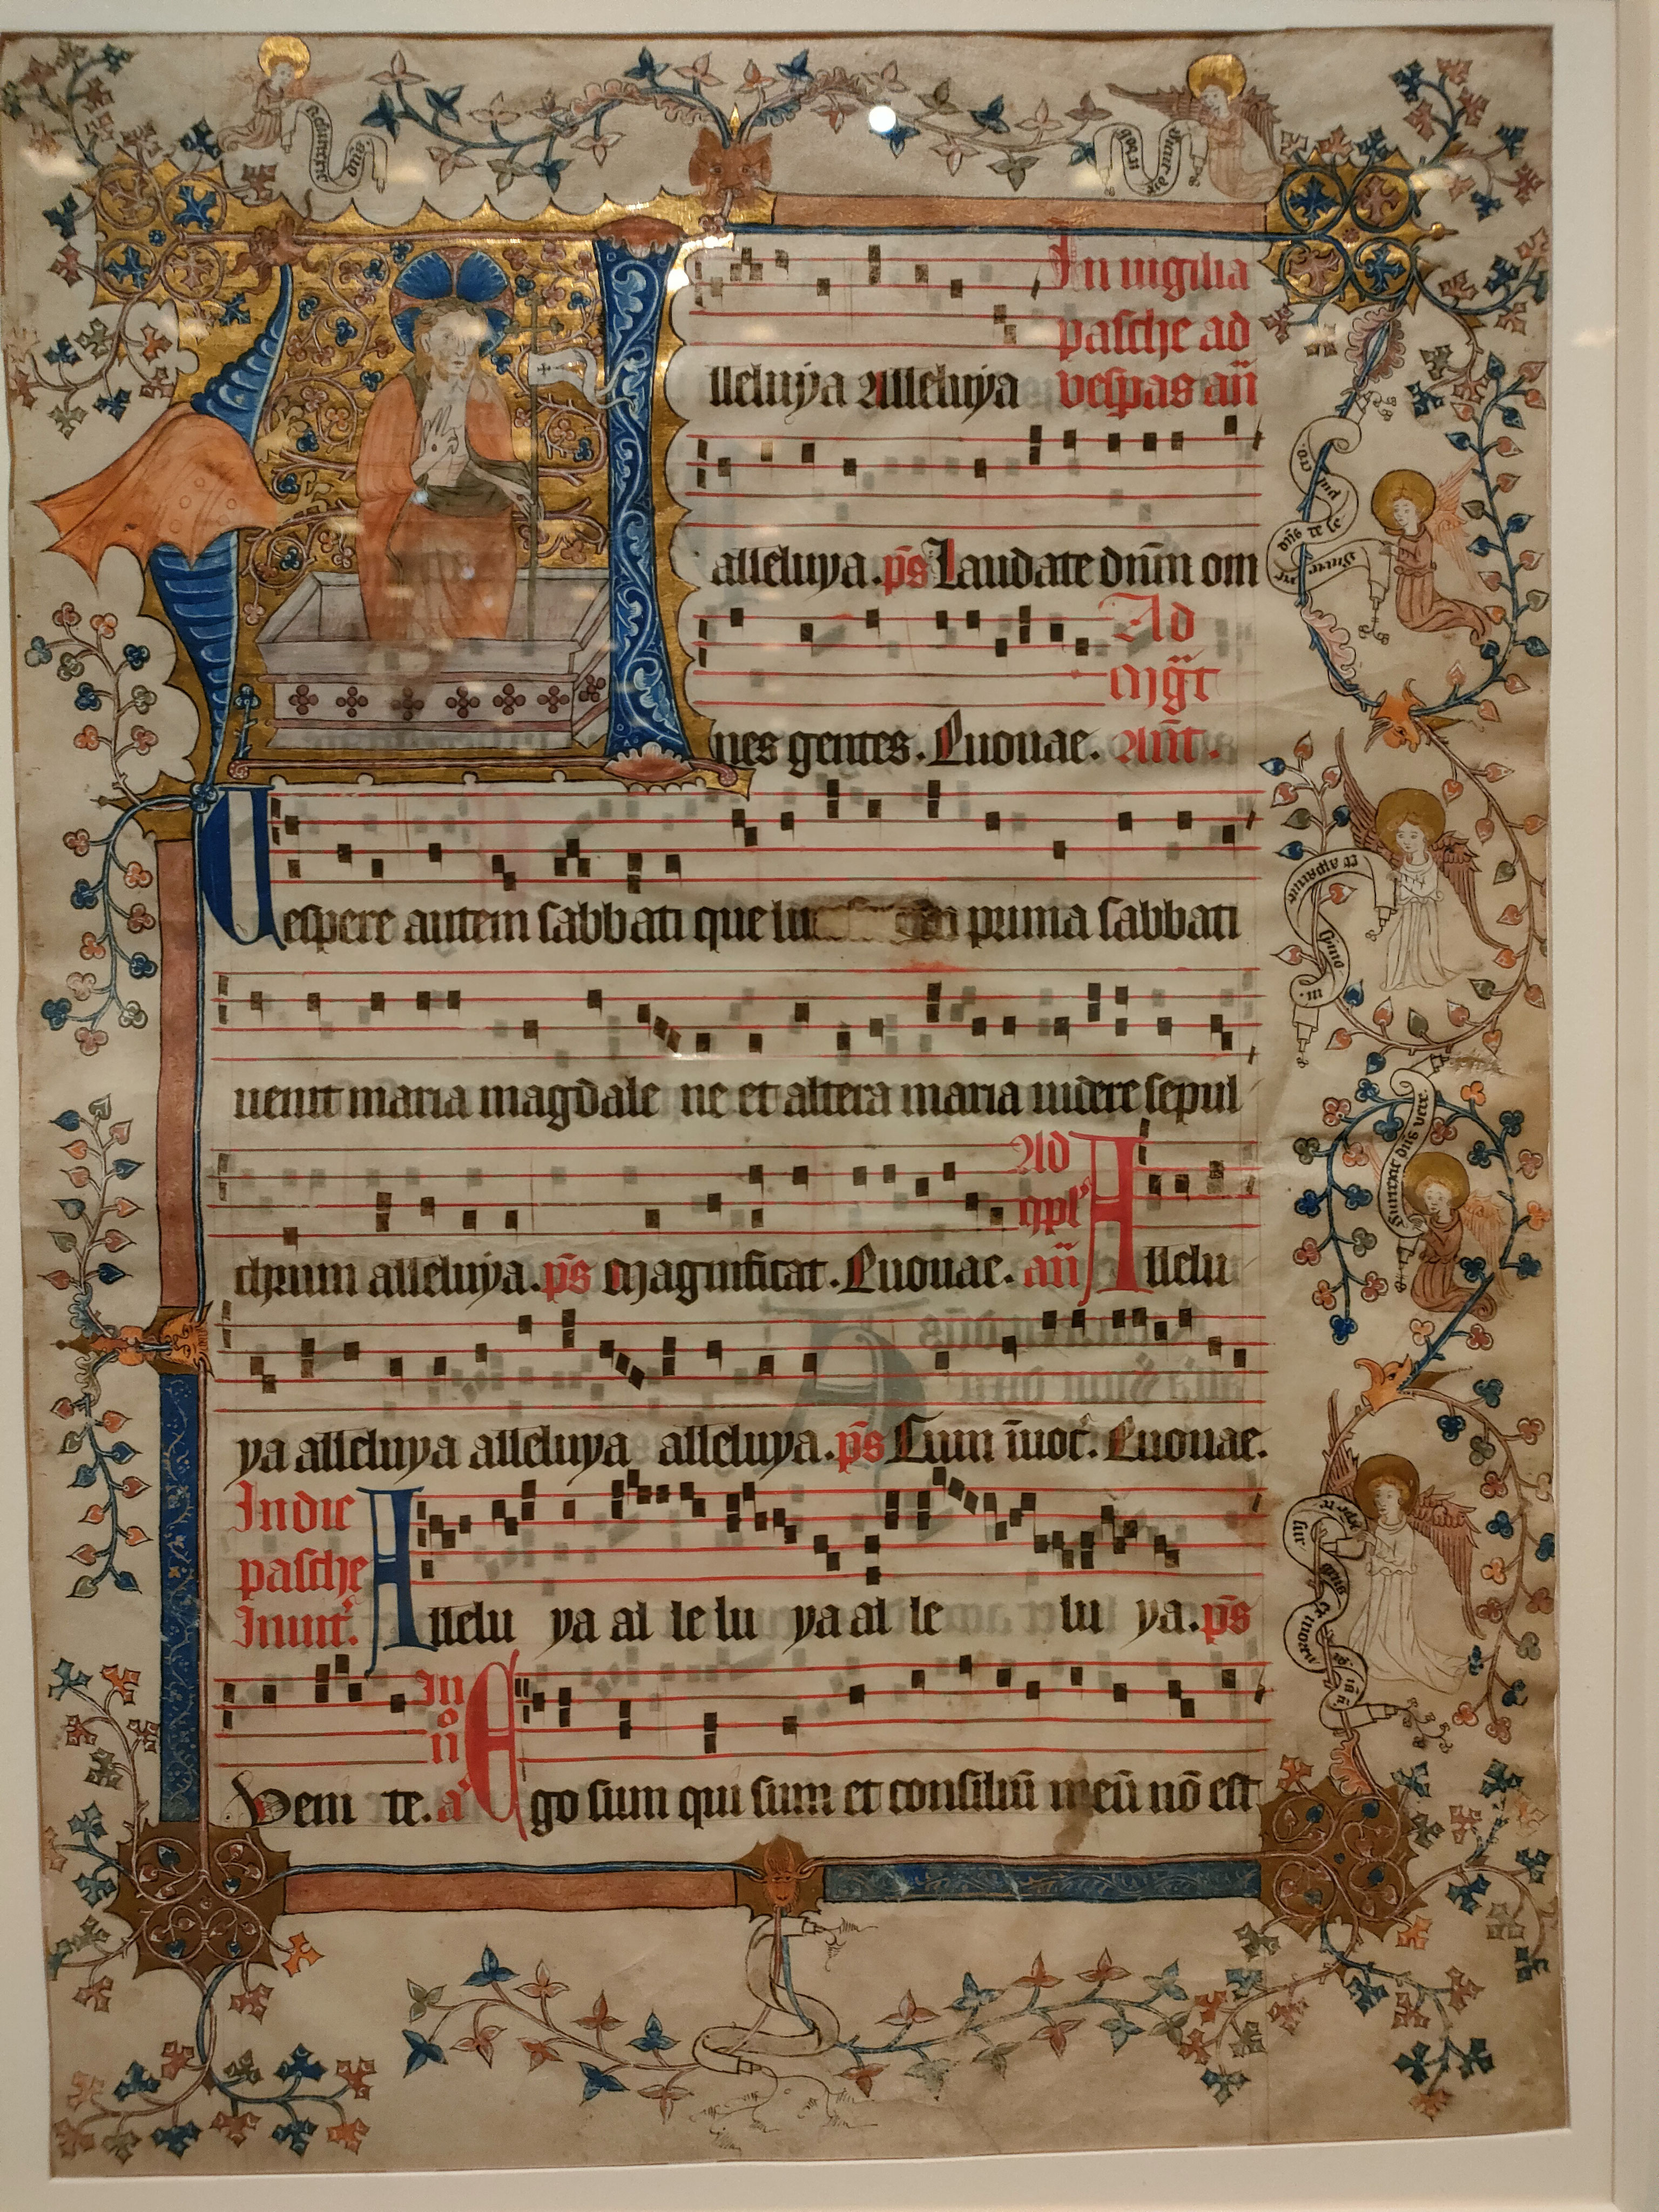 In uigilia
pasche ad
lleluya Alleluya vespas añ
alleluya. p̄s Laudate dn̄m om
Ad
mḡt
nes gentes. Euouae. Ant̄.
Vespere autem sabbati que lu prima sabbati
uenit maria magdale ne et altera maria uidere sepul
Ad
chrum alleluya. p̄s Magnificat. Euouae. añ Allelu
ya alleluya alleluya alleluya. p̄s Cum īuoc̄. Euouae.
In die
pasche
Inuit̄. Allelu ya al le lu ya al le lu ya. p̄s
In
Veni te. a Ego sum qui sum et consiliū meū nō est
Surrexit dn̄s vere